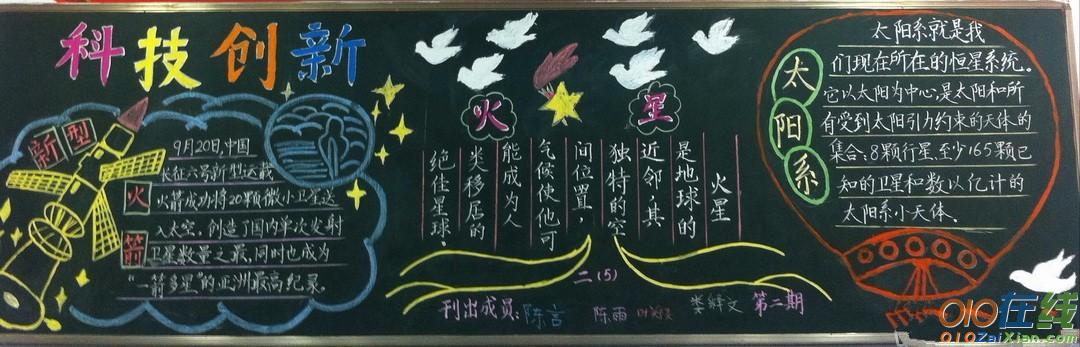 科技创新
新型
火
箭
9月20日,中国
长征六号新型运载
火箭成功将20颗微小卫星送
入太空,创造了国内单次发射
卫星数量之最,同时也成为
“一箭多星”的亚洲最高纪录。
火星
火星
是地球的
近邻,其
独特的空
间位置,
气候使他可
能成为人
类移居的
绝佳星球。
二(5)
刊出成员:陈言 陈雨
第二期
太阳系
太阳系就是我
们现在所在的恒星系统。
它以太阳为中心,是太阳和所
有受到太阳引力约束的天体的
集合:8颗行星、至少165颗已
知的卫星和数以亿计的
太阳系小天体。
010在线
010ZaiXian.com